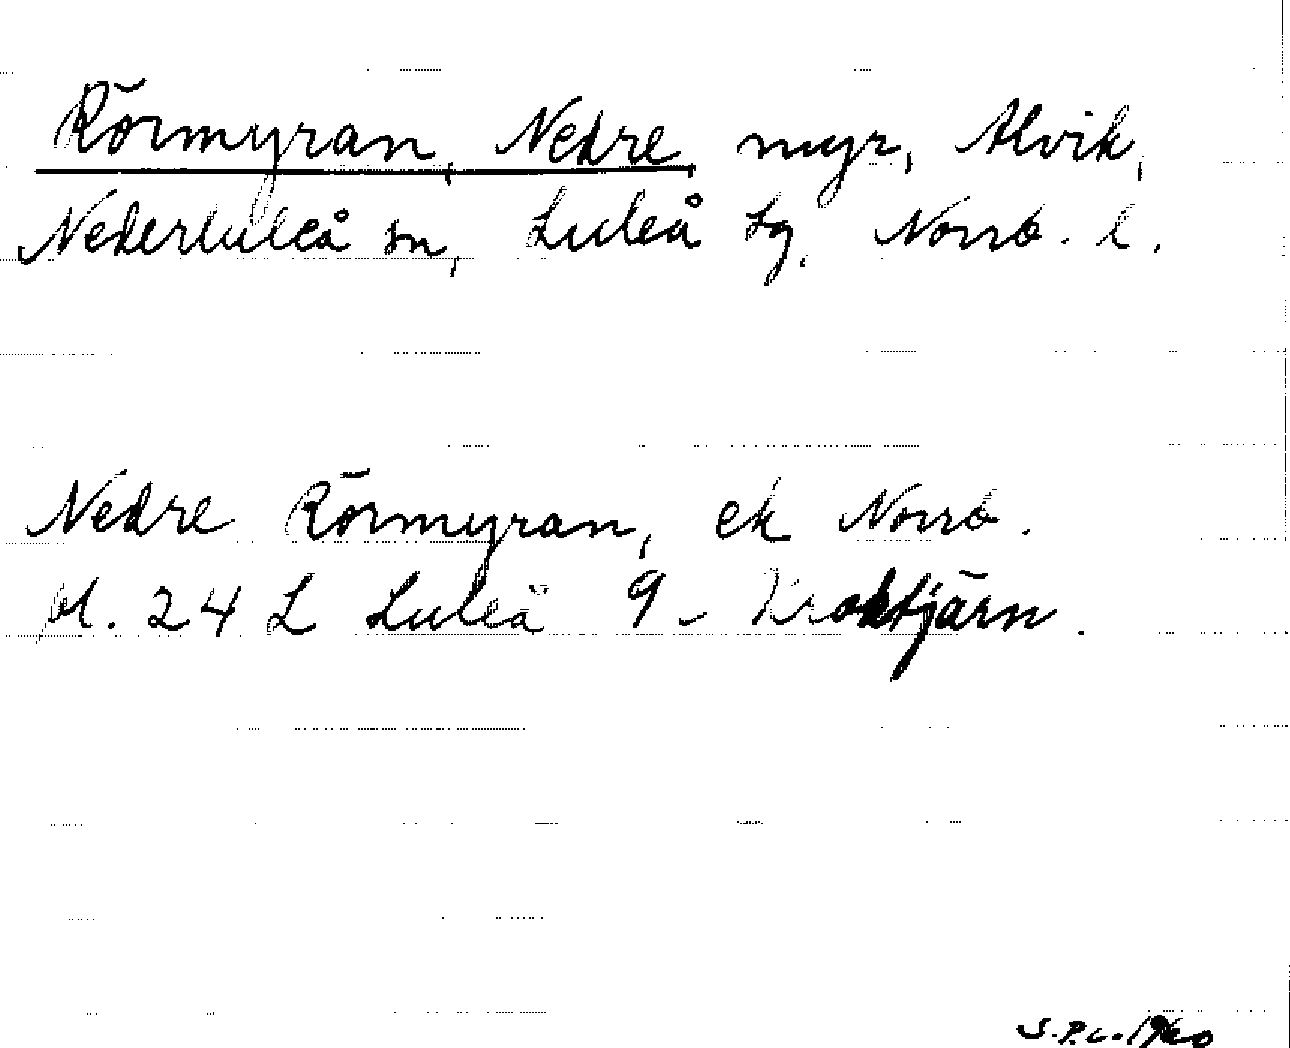 Rörmyran, Nedre, myr, Alvik,
Nederluleå sn, Luleå tg. Norrb. l.
Nedre Rörmyran, ek Norrb.
bl. 24 L Luleå 9 - Kroktjärn.
S.P.L. 1960